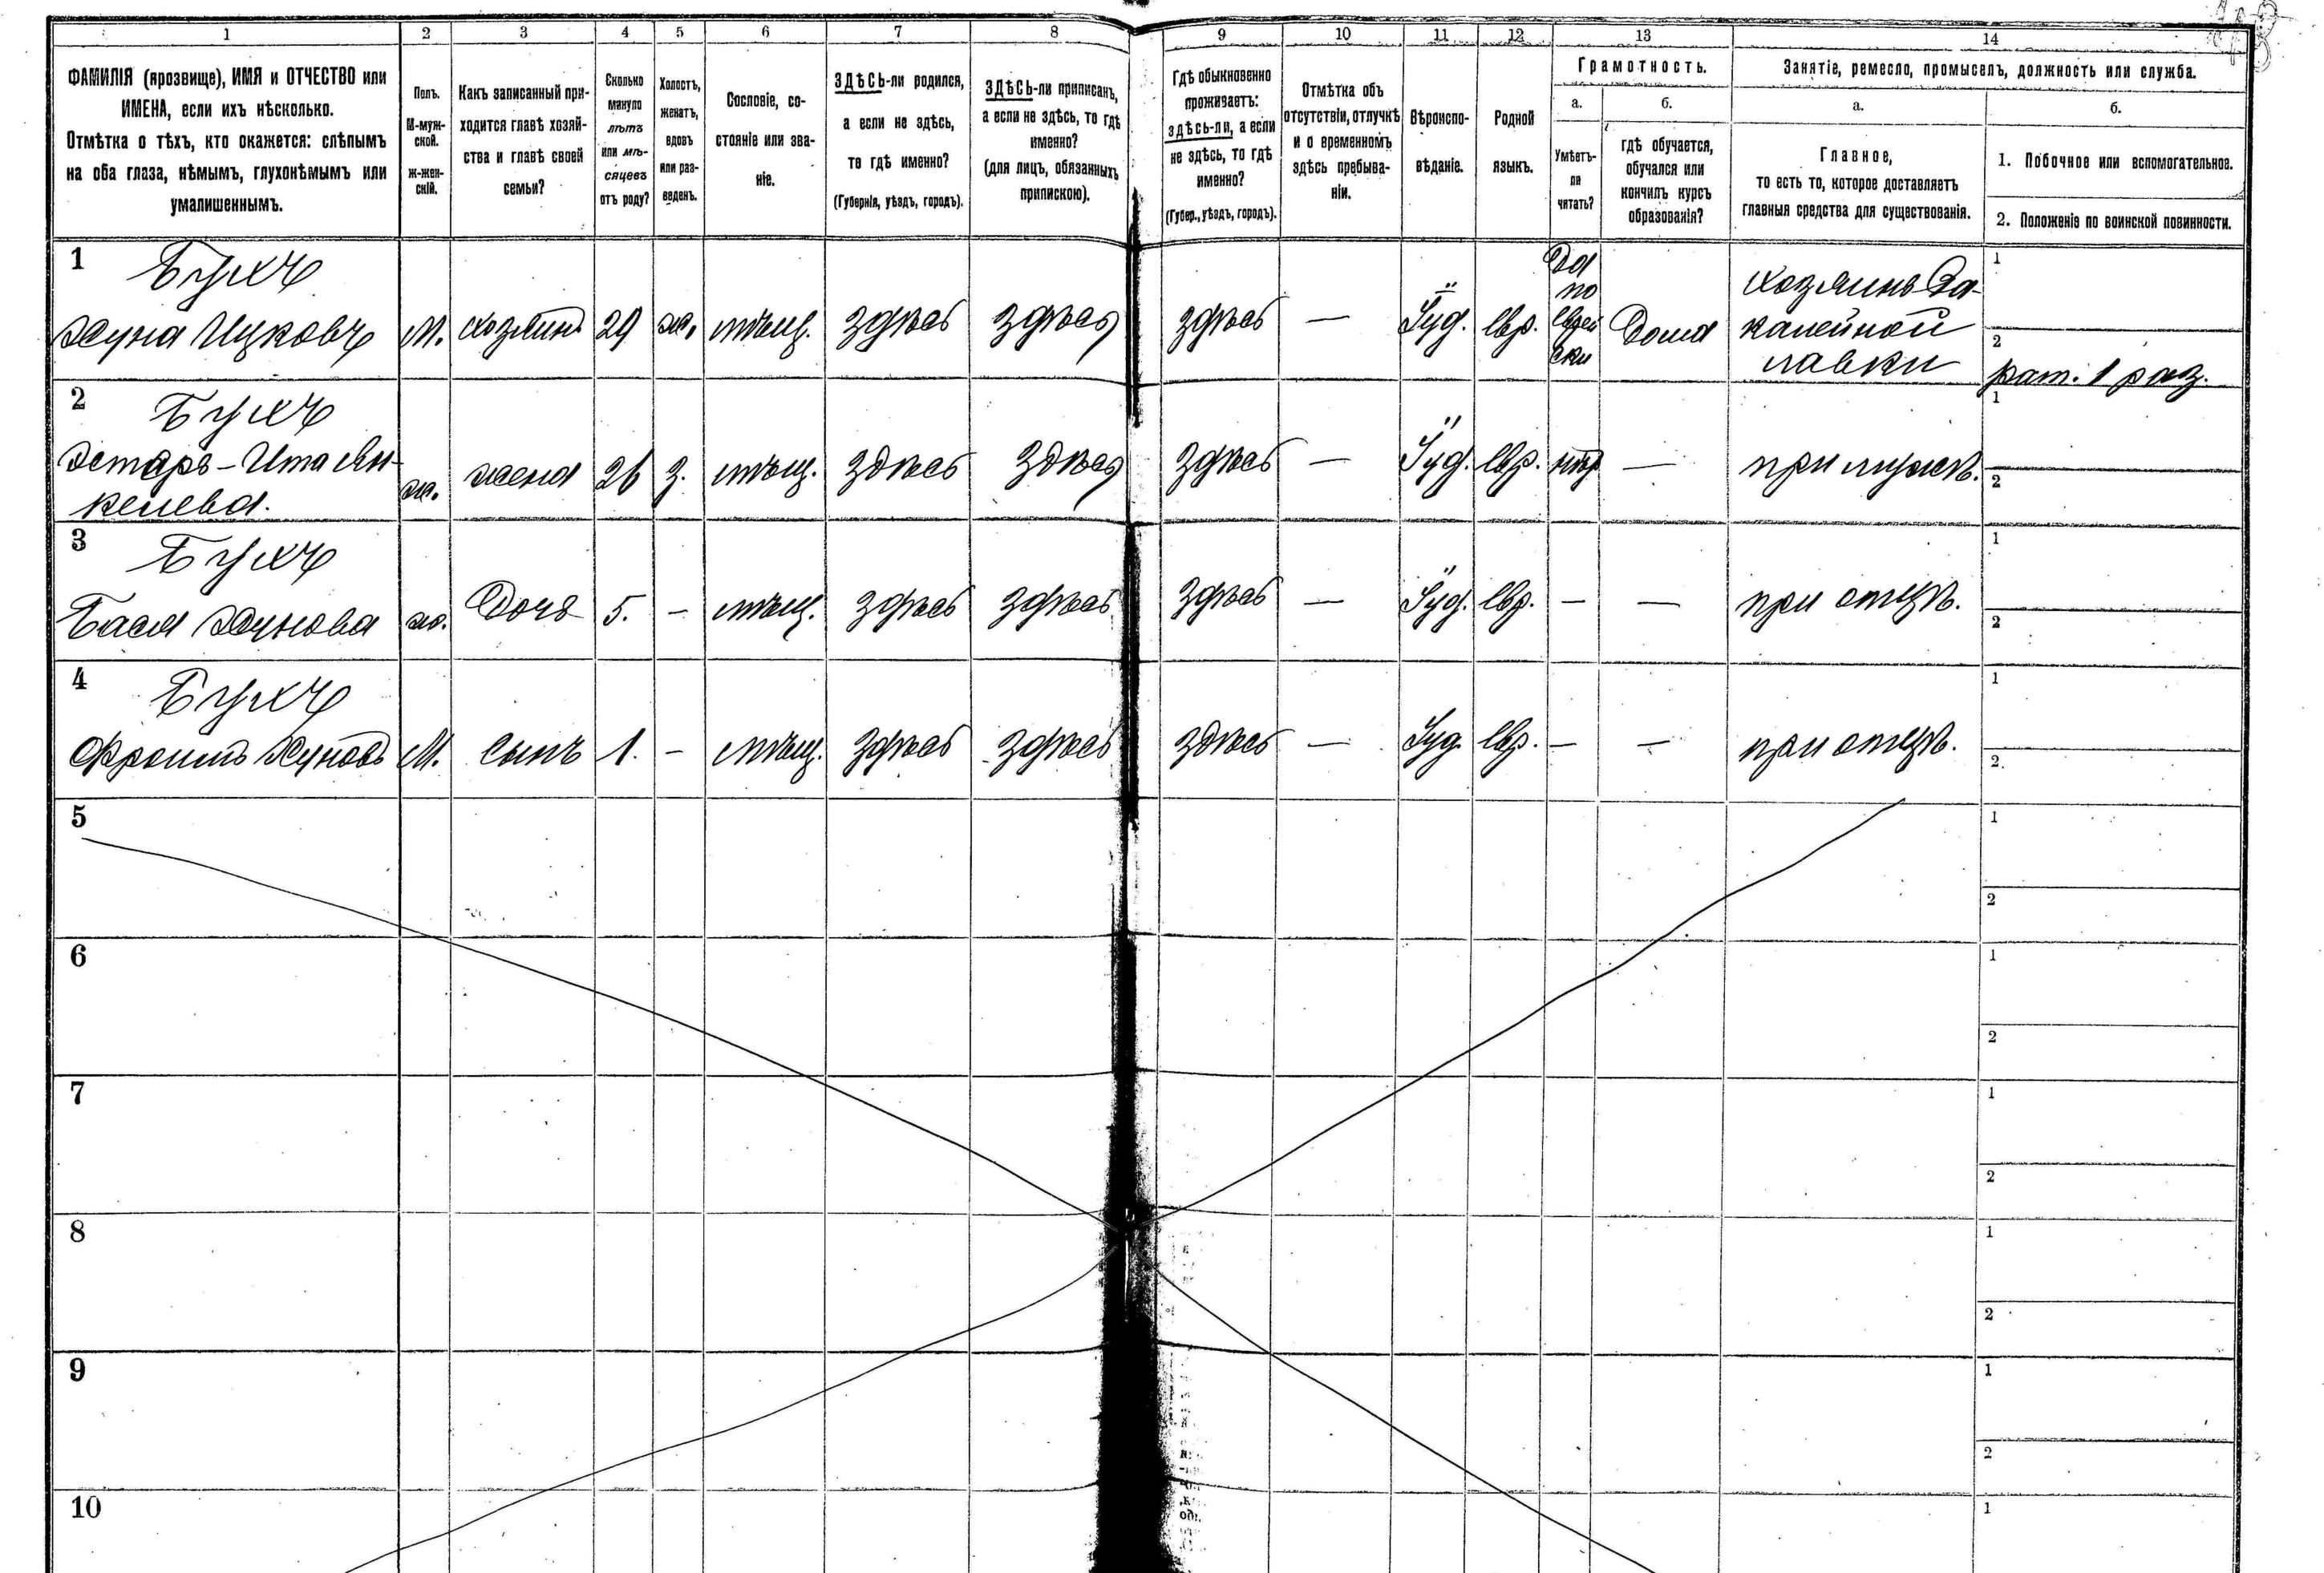 1 2 3 4 5 6 7 8 9 10 11 12 13 14
ФАМИЛІЯ (прозвище), ИМЯ и ОТЧЕСТВО или
ИМЕНА, если ихъ нѣсколько.
Отмѣтка о тѣхъ, кто окажется: слѣпымъ
на оба глаза, нѣмымъ, глухонѣмымъ или
умалишеннымъ.
Полъ.
М-муж-
ской.
ж-жен-
скій.
Какъ записанный при-
ходится главѣ хозяй-
ства и главѣ своей
семьи?
Сколько
минуло
лѣтъ
или мѣ-
сяцевъ
отъ роду?
Холостъ,
женатъ,
вдовъ
или раз-
веденъ.
Сословіе, со-
стояніе или зва-
ніе.
ЗДѢСЬ-ли родился,
а если не здѣсь,
то гдѣ именно?
(Губернія, уѣздъ, городъ).
ЗДѢСЬ-ли приписанъ,
а если не здѣсь, то гдѣ
именно?
(для лицъ, обязанныхъ
припискою).
Гдѣ обыкновенно
проживаетъ:
здѣсь-ли, а если
не здѣсь, то гдѣ
именно?
(Губер., уѣздъ, городъ).
Отмѣтка объ
отсутствіи, отлучкѣ
и о временномъ
здѣсь пребыва-
ніи.
Вѣроиспо-
вѣданіе.
Родной
языкъ.
Грамотность.
а.
Умѣетъ-
ли
читать?
б.
гдѣ обучается,
обучался или
кончилъ курсъ
образованія?
Занятіе, ремесло, промыселъ, должность или служба.
а.
Главное,
то есть то, которое доставляетъ
главныя средства для существованія.
б.
1. Побочное или вспомогательное.
2. Положеніе по воинской повинности.
1
Бухъ
Хуна Ицковъ
М.
хозяинъ
29
ж.
мѣщ.
здѣсь
здѣсь
здѣсь
—
Іуд.
евр.
Да
по
еврей
ски
Дома
хозяинъ ба-
калейной
лавки
1
2
рат. 1 раз.
2
Бухъ
Эстеръ-Ита Ян-
келева.
ж.
жена
26
з.
мѣщ.
здѣсь
здѣсь
здѣсь
—
Іуд.
евр.
нѣт
—
при мужѣ.
1
2
3
Бухъ
Бася Хунова
ж.
Дочь
5.
-
мѣщ.
здѣсь
здѣсь
здѣсь
—
Іуд.
евр.
-
—
при отцѣ.
1
2
4
Бухъ
Фроимъ Хуновъ
М.
Сынъ
1.
-
мѣщ.
здѣсь
здѣсь
здѣсь
—
Іуд
евр.
-
-
при отцѣ.
1
2.
5
1
2
6
1
2
7
1
2
8
1
2
9
1
2
10
1